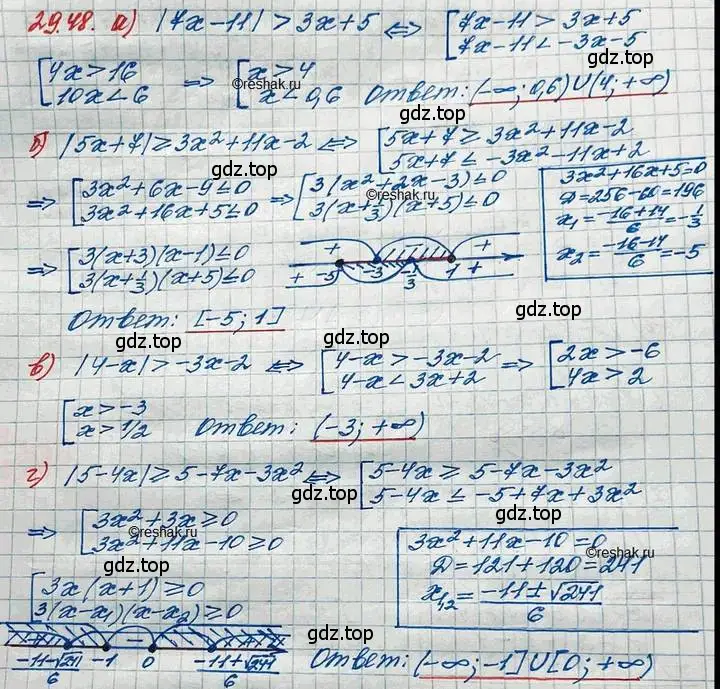 29.48. а) |7x-11| > 3x+5 ⇔ [7x-11 > 3x+5
7x-11 < -3x-5
[4x > 16
10x < 6 ⇒ [x > 4
x < 0,6 Ответ: (-∞; 0,6)∪(4; +∞)
©reshak.ru
б) |5x+7| ≥ 3x²+11x-2 ⇔ [5x+7 ≥ 3x²+11x-2
5x+7 ≤ -3x²-11x+2
gdz.top
gdz.top
⇒ [3x²+6x-9 ≤ 0
3x²+16x+5 ≤ 0 ⇒ [3(x²+2x-3) ≤ 0
3(x+1/3)(x+5) ≤ 0
©reshak.ru
3x²+16x+5=0
D=256-60=196
x₁ = (-16+14)/6 = -1/3
x₂ = (-16-14)/6 = -5
⇒ [3(x+3)(x-1) ≤ 0
3(x+1/3)(x+5) ≤ 0
+ +
+ -5 -3 -1/3 1 +
Ответ: [-5; 1]
gdz.top
gdz.top
в) |4-x| > -3x-2 ⇔ [4-x > -3x-2
4-x < 3x+2 ⇒ [2x > -6
4x > 2
[x > -3
x > 1/2 Ответ: (-3; +∞)
gdz.top
г) |5-4x| ≥ 5-7x-3x² ⇔ [5-4x ≥ 5-7x-3x²
5-4x ≤ -5+7x+3x²
gdz.top
⇒ [3x²+3x ≥ 0
3x²+11x-10 ≥ 0
©reshak.ru
gdz.top
3x²+11x-10=0
D=121+120=241
x₁,₂ = (-11±√241)/6
©reshak.ru
[3x(x+1) ≥ 0
3(x-x₁)(x-x₂) ≥ 0
(-11-√241)/6 -1 - 0 (-11+√241)/6
gdz.top
Ответ: (-∞; -1]∪[0; +∞)
gdz.top